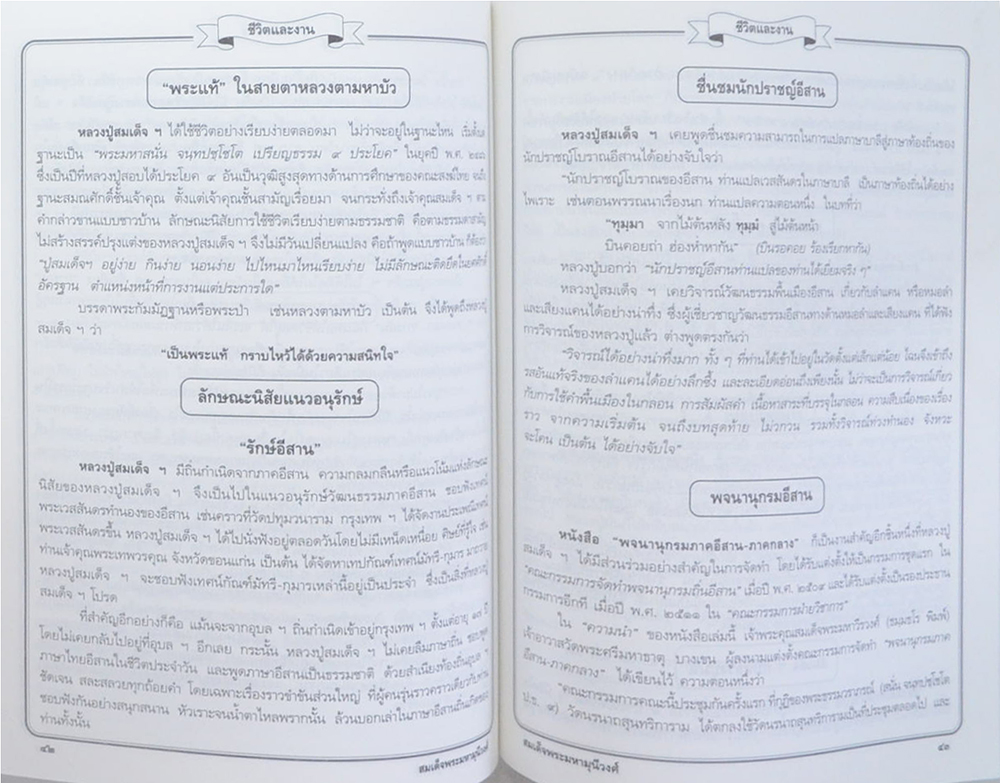 ชีวิตและงาน
“พระแท้” ในสายตาหลวงตามหาบัว
หลวงปู่สมเด็จ ฯ ได้ใช้ชีวิตอย่างเรียบง่ายตลอดมา ไม่ว่าจะอยู่ในฐานะไหน เริ่มตั้งแต่
ฐานะเป็น “พระมหาสนั่น จนฺทปชฺโชโต เปรียญธรรม ๙ ประโยค” ในยุคปี พ.ศ.
ซึ่งเป็นปีที่หลวงปู่สอบได้ประโยค ๙ อันเป็นวุฒิสูงสุดทางด้านการศึกษาของคณะสงฆ์ไทย จนถึง
ฐานะสมณศักดิ์ชั้นเจ้าคุณ ตั้งแต่เจ้าคุณชั้นสามัญเรื่อยมา จนกระทั่งถึงเจ้าคุณสมเด็จฯ
คำกล่าวขานแบบชาวบ้าน ลักษณะนิสัยการใช้ชีวิตเรียบง่ายตามธรรมชาติ คือตามธรรมดาสามัญ
ไม่สร้างสรรค์ปรุงแต่งของหลวงปู่สมเด็จ ฯ จึงไม่มีวันเปลี่ยนแปลง คือถ้าพูดแบบชาวบ้าน ก็ต้องว่า
“ปู่สมเด็จฯ อยู่ง่าย กินง่าย นอนง่าย ไปไหนมาไหนเรียบง่าย ไม่มีลักษณะติดยึดในยศศักดิ์
อัครฐาน ตำแหน่งหน้าที่การงานแต่ประการใด”
บรรดาพระกัมมัฏฐานหรือพระป่า เช่นหลวงตามหาบัว เป็นต้น จึงได้พูดถึงหลวงปู่
สมเด็จ ฯ ว่า
“เป็นพระแท้ กราบไหว้ได้ด้วยความสนิทใจ”
ลักษณะนิสัยแนวอนุรักษ์
“รักษ์อีสาน”
หลวงปู่สมเด็จ ฯ มีถิ่นกำเนิดจากภาคอีสาน ความกลมกลืนหรือแนวโน้มแห่งลักษณะ
นิสัยของหลวงปู่สมเด็จ ฯ จึงเป็นไปในแนวอนุรักษ์วัฒนธรรมภาคอีสาน ชอบฟังเทศน์
พระเวสสันดรทำนองของอีสาน เช่นคราวที่วัดปทุมวนาราม กรุงเทพ ฯ ได้จัดงานประเพณีเทศน์
พระเวสสันดรขึ้น หลวงปู่สมเด็จ ฯ ได้ไปนั่งฟังอยู่ตลอดวันโดยไม่มีเหน็ดเหนื่อย ศิษย์ที่รู้ใจ เช่น
ท่านเจ้าคุณพระเทพวรคุณ จังหวัดขอนแก่น เป็นต้น ได้จัดหาเทปกัณฑ์เทศน์มัทรี-กุมาร มาถวาย
หลวงปู่สมเด็จ ฯ จะชอบฟังเทศน์กัณฑ์มัทรี-กุมารเหล่านี้อยู่เป็นประจำ ซึ่งเป็นสิ่งที่หลวงปู่
สมเด็จ ฯ โปรด
ที่สำคัญอีกอย่างก็คือ แม้นจะจากอุบล ฯ ถิ่นกำเนิดเข้าอยู่กรุงเทพ ฯ ตั้งแต่อายุ ๑๙ ปี
โดยไม่เคยกลับไปอยู่ที่อุบล ฯ อีกเลย กระนั้น หลวงปู่สมเด็จ ฯ ไม่เคยลืมภาษาถิ่น ชอบพูด
ภาษาไทยอีสานในชีวิตประจำวัน และพูดภาษาอีสานเป็นประจำ ด้วยสำเนียงท้องถิ่นอุบล ฯ
ชัดเจน สละสลวยทุกถ้อยคำ โดยเฉพาะเรื่องราวขำขันส่วนใหญ่ ที่ผู้คนรุ่นราวคราวเดียวกับท่าน
ชอบฟังกันอย่างสนุกสนาน หัวเราะจนน้ำตาไหลพรากนั้น ล้วนบอกเล่าในภาษาอีสานถิ่นเกิดของ
ท่านทั้งนั้น
๔๒
สมเด็จพระมหามุนีวงศ์
ชีวิตและงาน
ชื่นชมนักปราชญ์อีสาน
หลวงปู่สมเด็จ ฯ เคยพูดชื่นชมความสามารถในการแปลภาษาบาลีสู่ภาษาท้องถิ่นของ
นักปราชญ์โบราณอีสานได้อย่างจับใจว่า
“นักปราชญ์โบราณของอีสาน ท่านแปลเวสสันดรในภาษาบาลี เป็นภาษาท้องถิ่นได้อย่าง
ไพเราะ เช่นตอนพรรณนาเรื่องนก ท่านแปลความตอนหนึ่ง ในบทที่ว่า
“ทุมฺมา จากไม้ต้นหลัง ทุมฺมํ สู่ไม้ต้นหน้า
บินคอยถ่า ฮ่องหำหากัน” (บินรอคอย ร้องเรียกหากัน)
หลวงปู่บอกว่า “นักปราชญ์อีสานท่านแปลของท่านได้เยี่ยมจริง ๆ”
หลวงปู่สมเด็จ ฯ เคยวิจารณ์วัฒนธรรมพื้นเมืองอีสาน เกี่ยวกับลำแคน หรือหมอลำ
และเสียงแคนได้อย่างน่าทึ่ง ซึ่งผู้เชี่ยวชาญวัฒนธรรมอีสานทางด้านหมอลำและเสียงแคน ที่ได้ฟัง
การวิจารณ์ของหลวงปู่แล้ว ต่างพูดตรงกันว่า
“วิจารณ์ได้อย่างน่าทึ่งมาก ทั้ง ๆ ที่ท่านได้เข้าไปอยู่ในวัดตั้งแต่เล็กแต่น้อย ไฉนจึงเข้าถึง
รสอันแท้จริงของลำแคนได้อย่างลึกซึ้ง และละเอียดอ่อนถึงเพียงนั้น ไม่ว่าจะเป็นการวิจารณ์เกี่ยว
กับการใช้คำพื้นเมืองในกลอน การสัมผัสคำ เนื้อหาสาระที่บรรจุในกลอน ความสืบเนื่องของเรื่อง
ราว จากความเริ่มต้น จนถึงบทสุดท้าย ไม่วกวน รวมทั้งวิจารณ์ท่วงทำนอง จังหวะ
จะโคน เป็นต้น ได้อย่างจับใจ”
พจนานุกรมอีสาน
หนังสือ “พจนานุกรมภาคอีสาน-ภาคกลาง” ก็เป็นงานสำคัญอีกชิ้นหนึ่งที่หลวงปู่
สมเด็จ ฯ ได้มีส่วนร่วมอย่างสำคัญในการจัดทำ โดยได้รับแต่งตั้งให้เป็นกรรมการชุดแรก ใน
“คณะกรรมการจัดทำพจนานุกรมถิ่นอีสาน” เมื่อปี พ.ศ. ๒๕๐๙ และได้รับแต่งตั้งเป็นรองประธาน
กรรมการอีกที เมื่อปี พ.ศ. ๒๕๑๑ ใน “คณะกรรมการฝ่ายวิชาการ”
ใน “ความนำ” ของหนังสือเล่มนี้ เจ้าพระคุณสมเด็จพระมหาวีรวงศ์ (ธมฺมธโร พิมพ์)
เจ้าอาวาสวัดพระศรีมหาธาตุ บางเขน ผู้ลงนามแต่งตั้งคณะกรรมการจัดทำ “พจนานุกรมภาค
อีสาน-ภาคกลาง” ได้เขียนไว้ ความตอนหนึ่งว่า
“คณะกรรมการคณะนี้ประชุมกันครั้งแรก ที่กุฏิของพระธรรมวราภรณ์ (สนั่น จนฺทปชฺโชโต
ป.ธ. ๙) วัดนรนาถสุนทริการาม ได้ตกลงใช้วัดนรนาถสุนทริการามเป็นที่ประชุมตลอดไป และ
สมเด็จพระมหามุนีวงศ์
๔๓